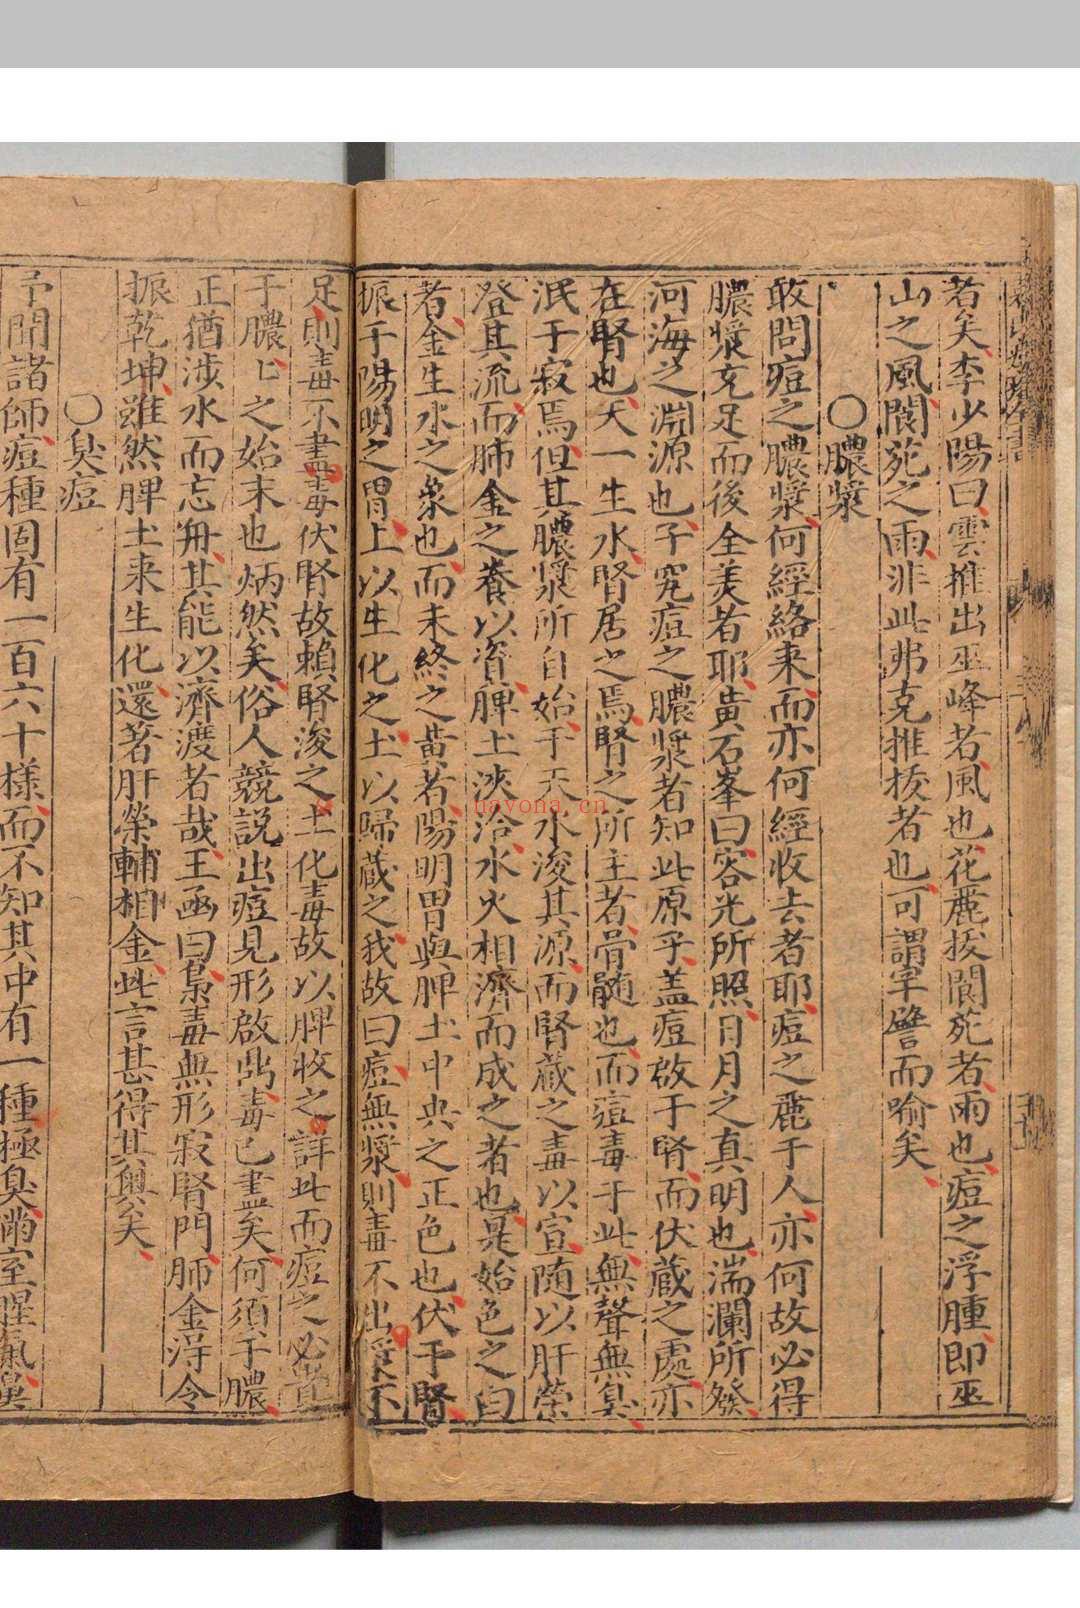 若矣李少陽曰雲推出巫峰者風也花麗拔閬苑者雨也痘之浮腫即巫
山之風閬苑之雨非此弗克推拔者也可謂罕譬而喻矣
〇膿漿
敢問痘之膿漿何經絡来而亦何經收去者耶痘之麗于人亦何故必得
膿漿充足而後全美者耶黄石峯曰容光所照日月之真明也湍瀾所發
河海之淵源也子究痘之膿漿者知此原乎盖痘啟于腎而伏藏之處亦
在腎也天一生水腎居之焉腎之所主者骨髓也而痘毒于此無聲無臭
泯于寂焉但其膿漿所自始于天水浚其源而腎藏之毒以宣随以肝榮
登其流而肺金之養以資脾土浹洽水火相濟而成之者也是始色之白
者金生水之象也而未終之黄者陽明胃與脾土中央之正色也伏于腎
振于陽明之胃上以生化之土以歸藏之我故曰痘無漿則毒不出漿不
足則毒不盡毒伏腎故賴腎浚之土化毒故以脾收之詳此而痘之必貴
于膿匕之始末也炳然矣俗人競說出痘見形啟齿毒已盡矣何須于膿
正猶涉水而忘舟其能以濟渡者哉王函曰梟毒無形寂腎門肺金浮令
振乾坤雖然脾土来生化還著肝榮輔相金此言甚得其奥矣
〇臭痘
予聞諸師痘種固有一百六十樣而不知其中有一種極臭滿室腥氣
uayona.cn